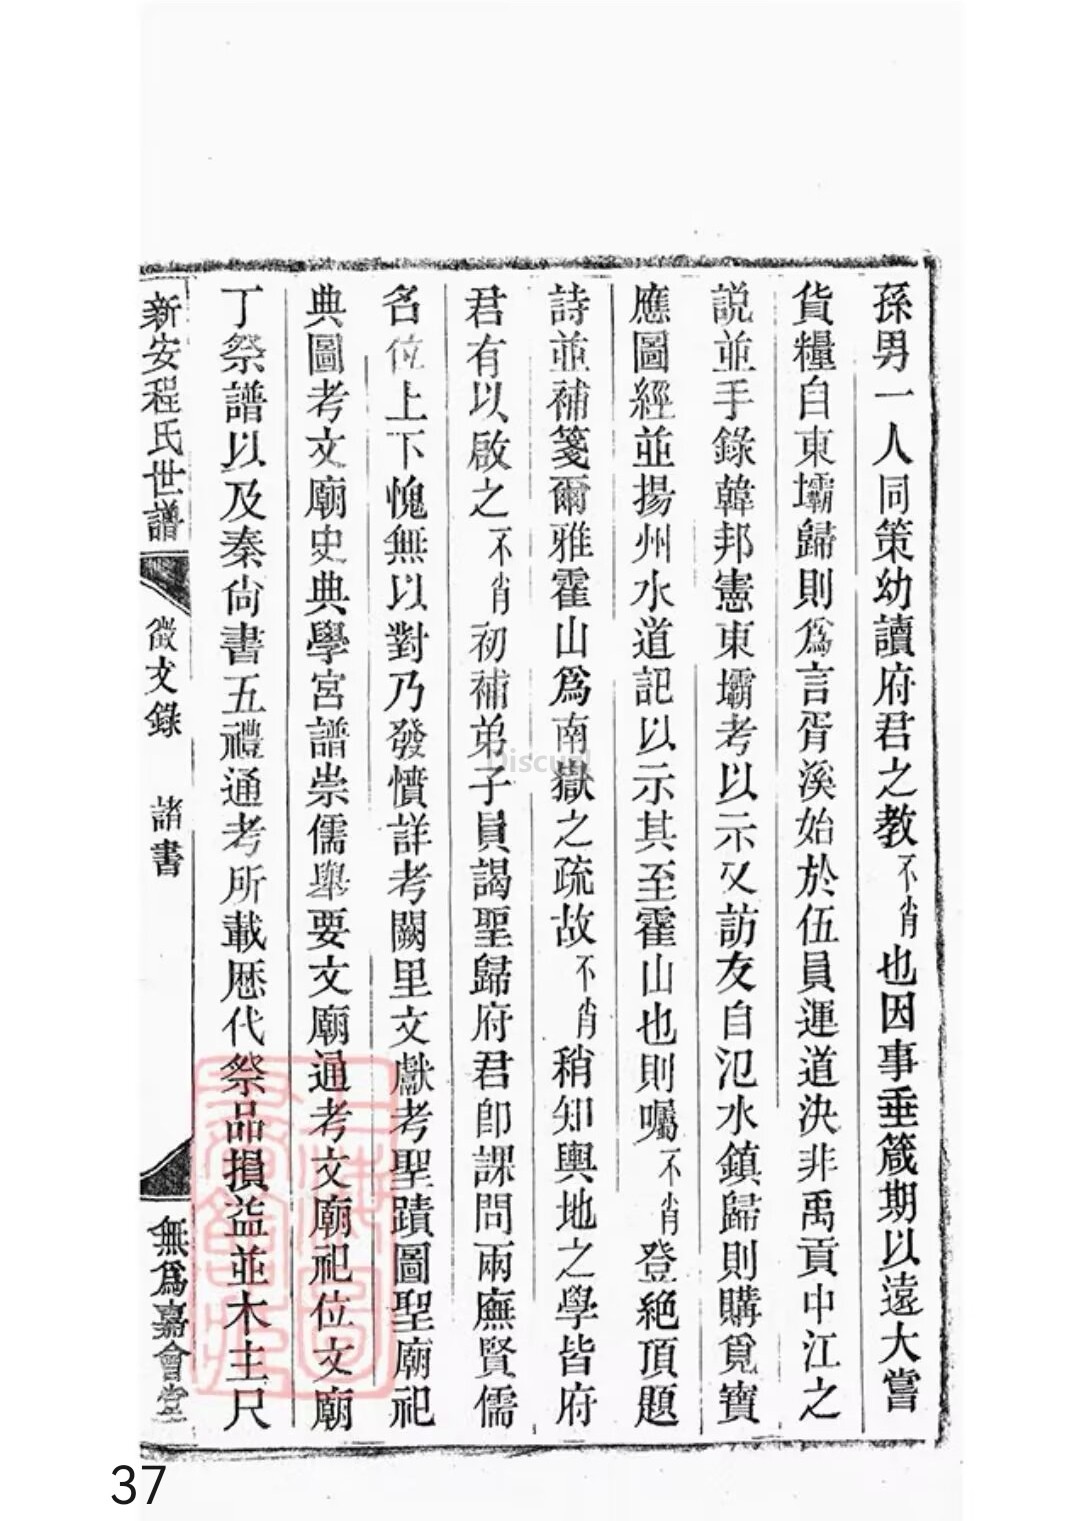 孫男一人同策幼讀府君之教不肖也因事垂箴期以遠大嘗
貨糧自東壩歸則爲言胥溪始於伍員運道決非禹貢中江之
説並手錄韓邦憲東壩考以示又訪友自氾水鎮歸則購覓寶
應圖經並揚州水道記以示其至霍山也則囑不肖登絶頂題
詩並補箋爾雅霍山爲南嶽之疏故不肖稍知輿地之學皆府
君有以啟之不肖初補弟子員謁聖歸府君卽課問兩廡賢儒
名位上下愧無以對乃發憤詳考闕里文獻考聖蹟圖聖廟祀
典圖考文廟史典學宮譜崇儒舉要文廟通考文廟祀位文廟
丁祭譜以及秦尙書五禮通考所載歷代祭品損益並木主尺
新安程氏世譜 徵文錄 諸書 無爲嘉會堂
Discuz!
37